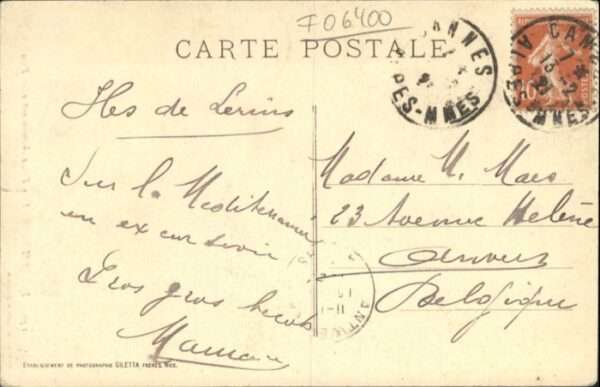 F06400
CARTE POSTALE
CANNES
ALPES-MMES
CANNES
7 *
15 - 2
21
ALPES-MMES
Iles de Lerins
Sur la Mediterranée
en excursion
Gros gros bécots
Maman
Madame M. Maes
23 Avenue Helène
Anvers
Belgique
ETABLISSEMENT DE PHOTOGRAPHIE GILETTA FRÈRES, NICE.